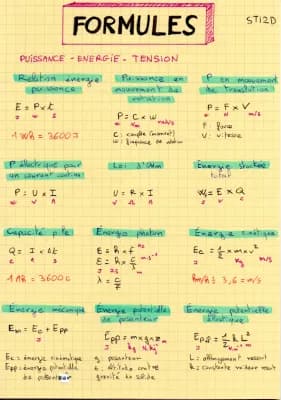 FORMULES
STI2D
PUISSANCE - ENERGIE - TENSION
Relation énergie puissance
E = P x t
J W s
1 Wh = 3600 J
Puissance en mouvement de rotation
P = C x w
W Nm rad/s
C : couple (moment)
w : fréquence de rotation
P en mouvement de translation
P = F x V
W N m/s
F : force
V : vitesse
P électrique pour un courant continu
P = U x I
W V A
Loi d'Ohm
U = R x I
V Ω A
Énergie stockée total
W = E x Q
Capacité pile
Q = I x Δt
C A s
1 Ah = 3600 C
Énergie photon
E = h x f
E = h x c/λ
λ = c/f
Énergie cinétique
Ec = 1/2 x m x v²
J kg m/s
km/h ÷ 3,6 = m/s
Énergie mécanique
Em = Ec + Epp
Ec = énergie cinétique
Epp = énergie potentielle de pesanteur
Énergie potentielle de pesanteur
Epp = m x g x z
J kg N.kg⁻¹ m
g : pesanteur
z : altitude centre gravité du solide
Énergie potentielle élastique
Epe = 1/2 k L²
L : allongement ressort
k : constante raideur ressort